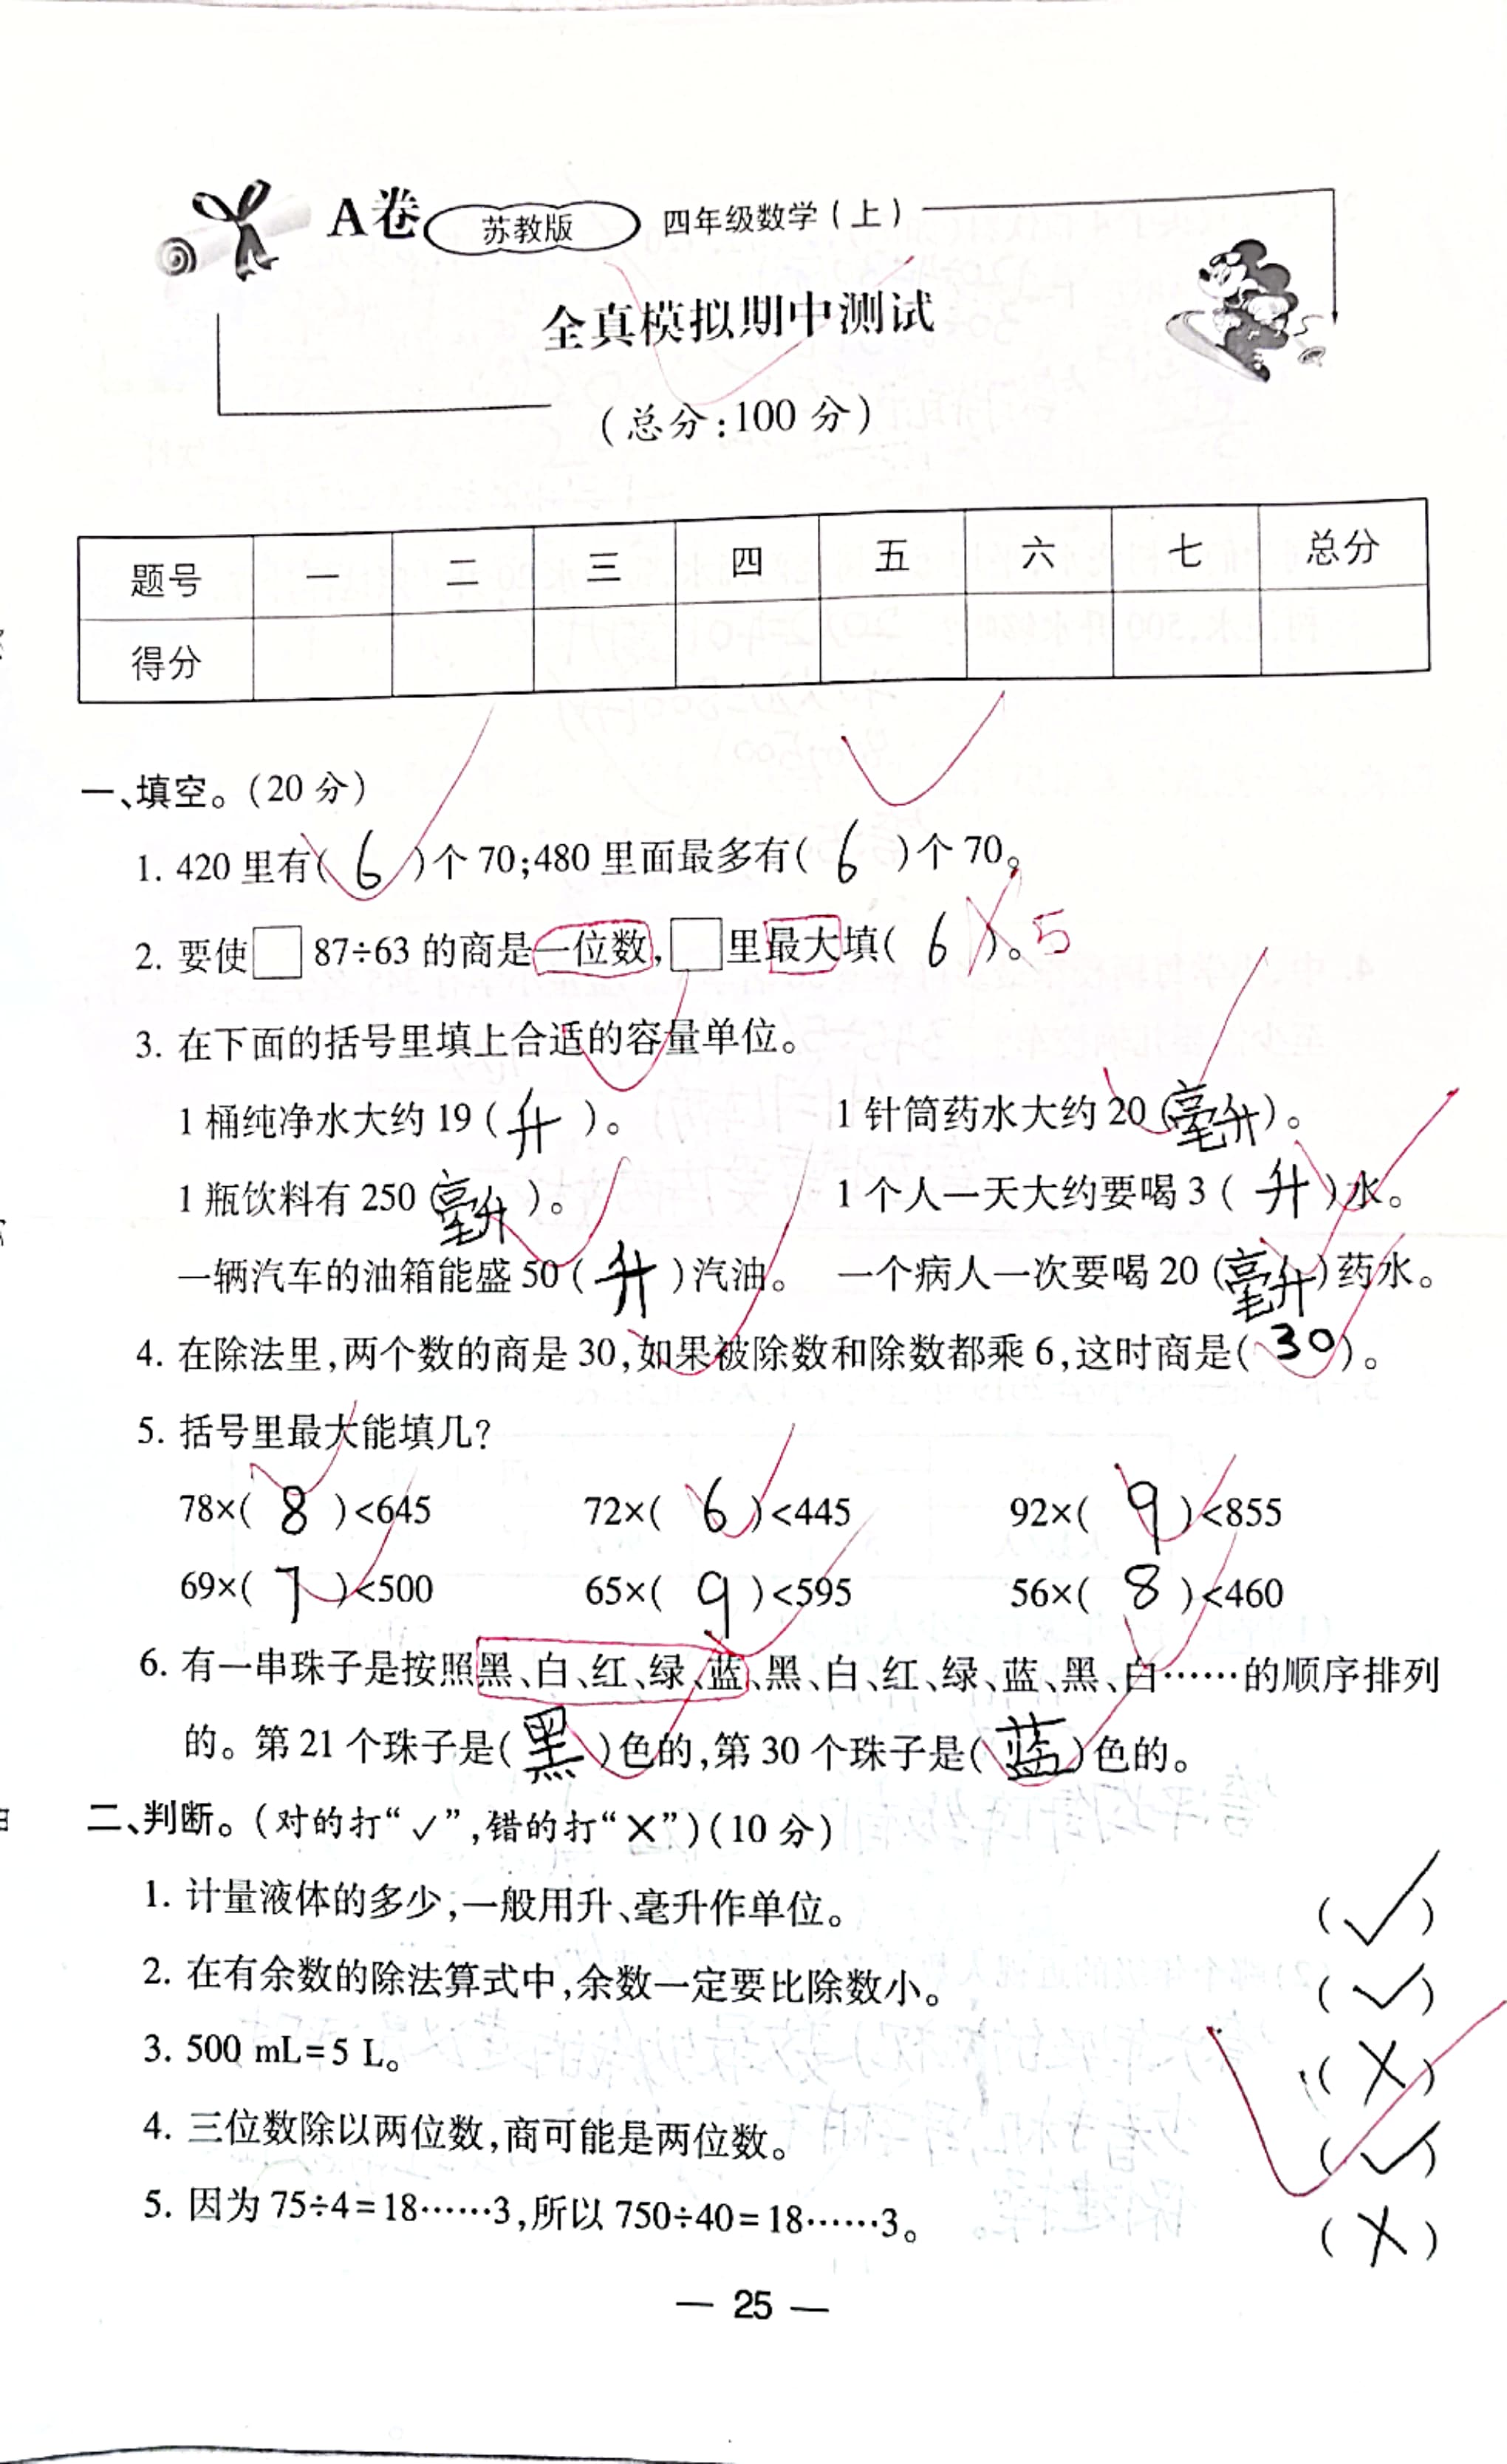 A卷 苏教版 四年级数学(上)
全真模拟期中测试
(总分:100 分)
题号 一 二 三 四 五 六 七 总分
得分
一、填空。(20 分)
1. 420 里有( 6 )个 70;480 里面最多有( 6 )个 70。
2. 要使□87÷63 的商是一位数,□里最大填( 6 )。5
3. 在下面的括号里填上合适的容量单位。
1 桶纯净水大约 19 ( 升 )。 1 针筒药水大约 20 (毫升)。
1 瓶饮料有 250 (毫升)。 1 个人一天大约要喝 3 ( 升 )水。
一辆汽车的油箱能盛 50 ( 升 )汽油。 一个病人一次要喝 20 (毫升)药水。
4. 在除法里,两个数的商是 30,如果被除数和除数都乘 6,这时商是( 30 )。
5. 括号里最大能填几?
78×( 8 )<645 72×( 6 )<445 92×( 9 )<855
69×( 7 )<500 65×( 9 )<595 56×( 8 )<460
6. 有一串珠子是按照黑、白、红、绿、蓝、黑、白、红、绿、蓝、黑、白……的顺序排列
的。第 21 个珠子是( 黑 )色的,第 30 个珠子是( 蓝 )色的。
二、判断。(对的打“✓”,错的打“✕”)(10 分)
1. 计量液体的多少,一般用升、毫升作单位。 (✓)
2. 在有余数的除法算式中,余数一定要比除数小。 (✓)
3. 500 mL=5 L。 (✕)
4. 三位数除以两位数,商可能是两位数。 (✓)
5. 因为 75÷4=18……3,所以 750÷40=18……3。 (✕)
— 25 —